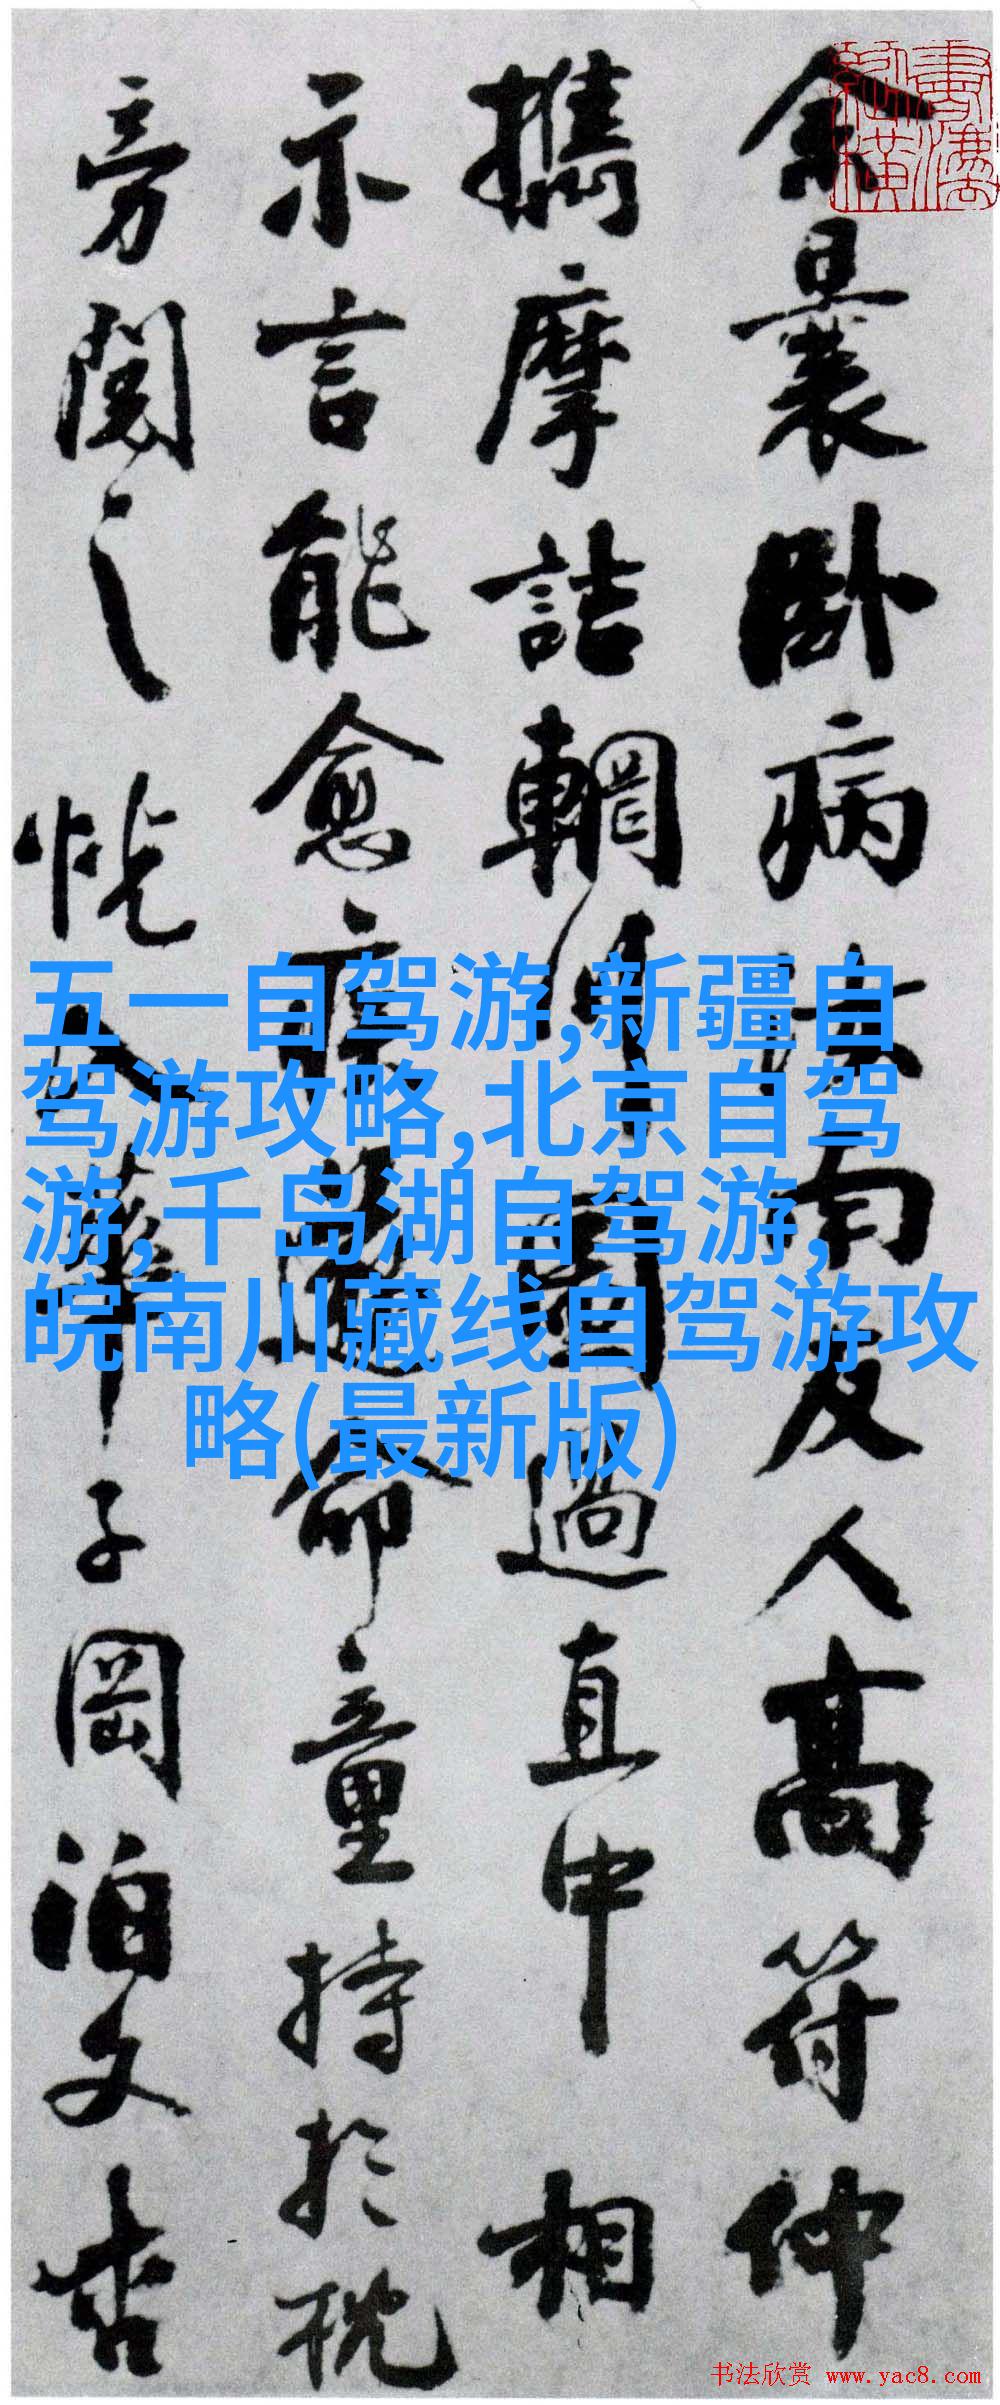 余曩卧病汝南友人高符仲
攜摩詰輞川圖過直中相
示言能愈疾遂命童持於枕
旁閱之恍入華子岡泊文杏
五一自驾游,新疆自
驾游攻略,北京自驾
游,千岛湖自驾游,
皖南川藏线自驾游攻
略(最新版)
书法欣赏 www.yac8.com